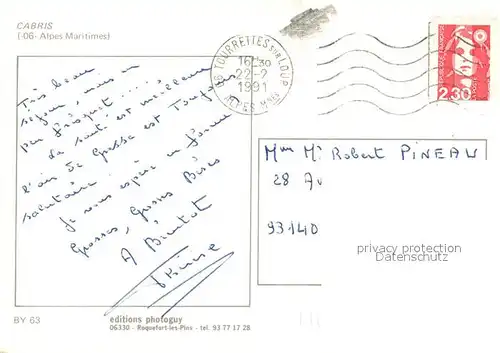 CABRIS
(-06- Alpes Maritimes)
06 TOURRETTES SUR LOUP
16H30
22-2
1991
ALPES Mmes
2,30
Très beau
séjour, mais un
peu frisquet....
La santé est meilleure
l'air de Grasse est Toujours
salutaire.
Je vous espère en forme
Grosses, Grosses Bises
A Bientôt
Mme Mr Robert PINEAU
28 Av
93140
privacy protection
Datenschutz
BY 63
editions photoguy
06330 - Roquefort-les-Pins - tel. 93 77 17 28